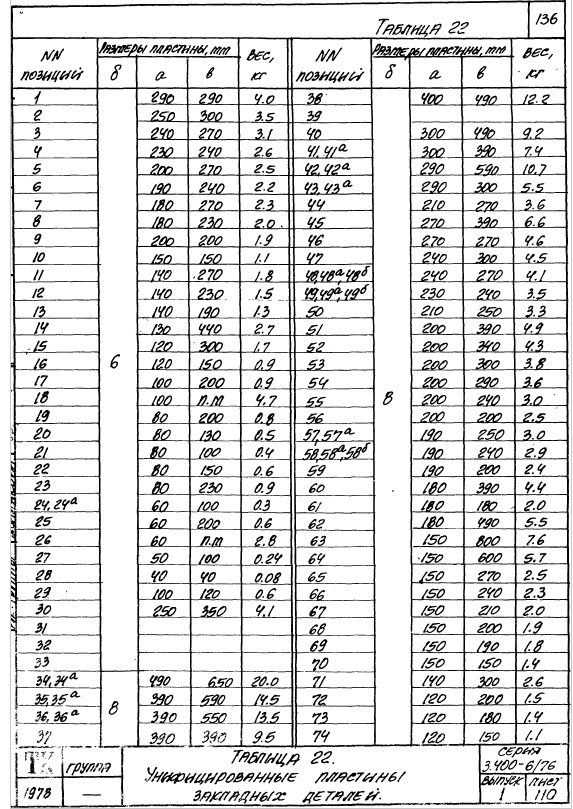 136
ТАБЛИЦА 22
NN ПОЗИЦИЙ РАЗМЕРЫ ПЛАСТИНЫ, mm ВЕС, КГ NN ПОЗИЦИЙ РАЗМЕРЫ ПЛАСТИНЫ, mm ВЕС, КГ
δ а в δ а в
1 290 290 4.0 38 400 490 12.2
2 250 300 3.5 39
3 240 270 3.1 40 300 490 9.2
4 230 240 2.6 41,41а 300 390 7.4
5 200 270 2.5 42,42а 290 590 10.7
6 190 240 2.2 43,43а 290 300 5.5
7 180 270 2.3 44 210 270 3.6
8 180 230 2.0 45 270 390 6.6
9 200 200 1.9 46 270 270 4.6
10 150 150 1.1 47 240 300 4.5
11 140 270 1.8 48,48а,48б 240 270 4.1
12 140 230 1.5 49,49а,49б 230 240 3.5
13 140 190 1.3 50 210 250 3.3
14 130 440 2.7 51 200 390 4.9
15 120 300 1.7 52 200 340 4.3
16 6 120 150 0.9 53 200 300 3.8
17 100 200 0.9 54 200 290 3.6
18 100 п.м 4.7 55 8 200 240 3.0
19 80 200 0.8 56 200 200 2.5
20 80 130 0.5 57,57а 190 250 3.0
21 80 100 0.4 58,58а,58б 190 240 2.9
22 80 150 0.6 59 190 200 2.4
23 80 230 0.9 60 180 390 4.4
24,24а 60 100 0.3 61 180 180 2.0
25 60 200 0.6 62 180 490 5.5
26 60 п.м 2.8 63 150 800 7.6
27 50 100 0.24 64 150 600 5.7
28 40 40 0.08 65 150 270 2.5
29 100 120 0.6 66 150 240 2.3
30 250 350 4.1 67 150 210 2.0
31 68 150 200 1.9
32 69 150 190 1.8
33 70 150 150 1.4
34,34а 490 650 20.0 71 140 300 2.6
35,35а 8 390 590 14.5 72 120 200 1.5
36,36а 390 550 13.5 73 120 180 1.4
37 390 390 9.5 74 120 150 1.1
ГРУППА
1978 —
ТАБЛИЦА 22.
УНИФИЦИРОВАННЫЕ ПЛАСТИНЫ
ЗАКЛАДНЫХ ДЕТАЛЕЙ.
СЕРИЯ
3.400-6/76
ВЫПУСК ЛИСТ
1 110